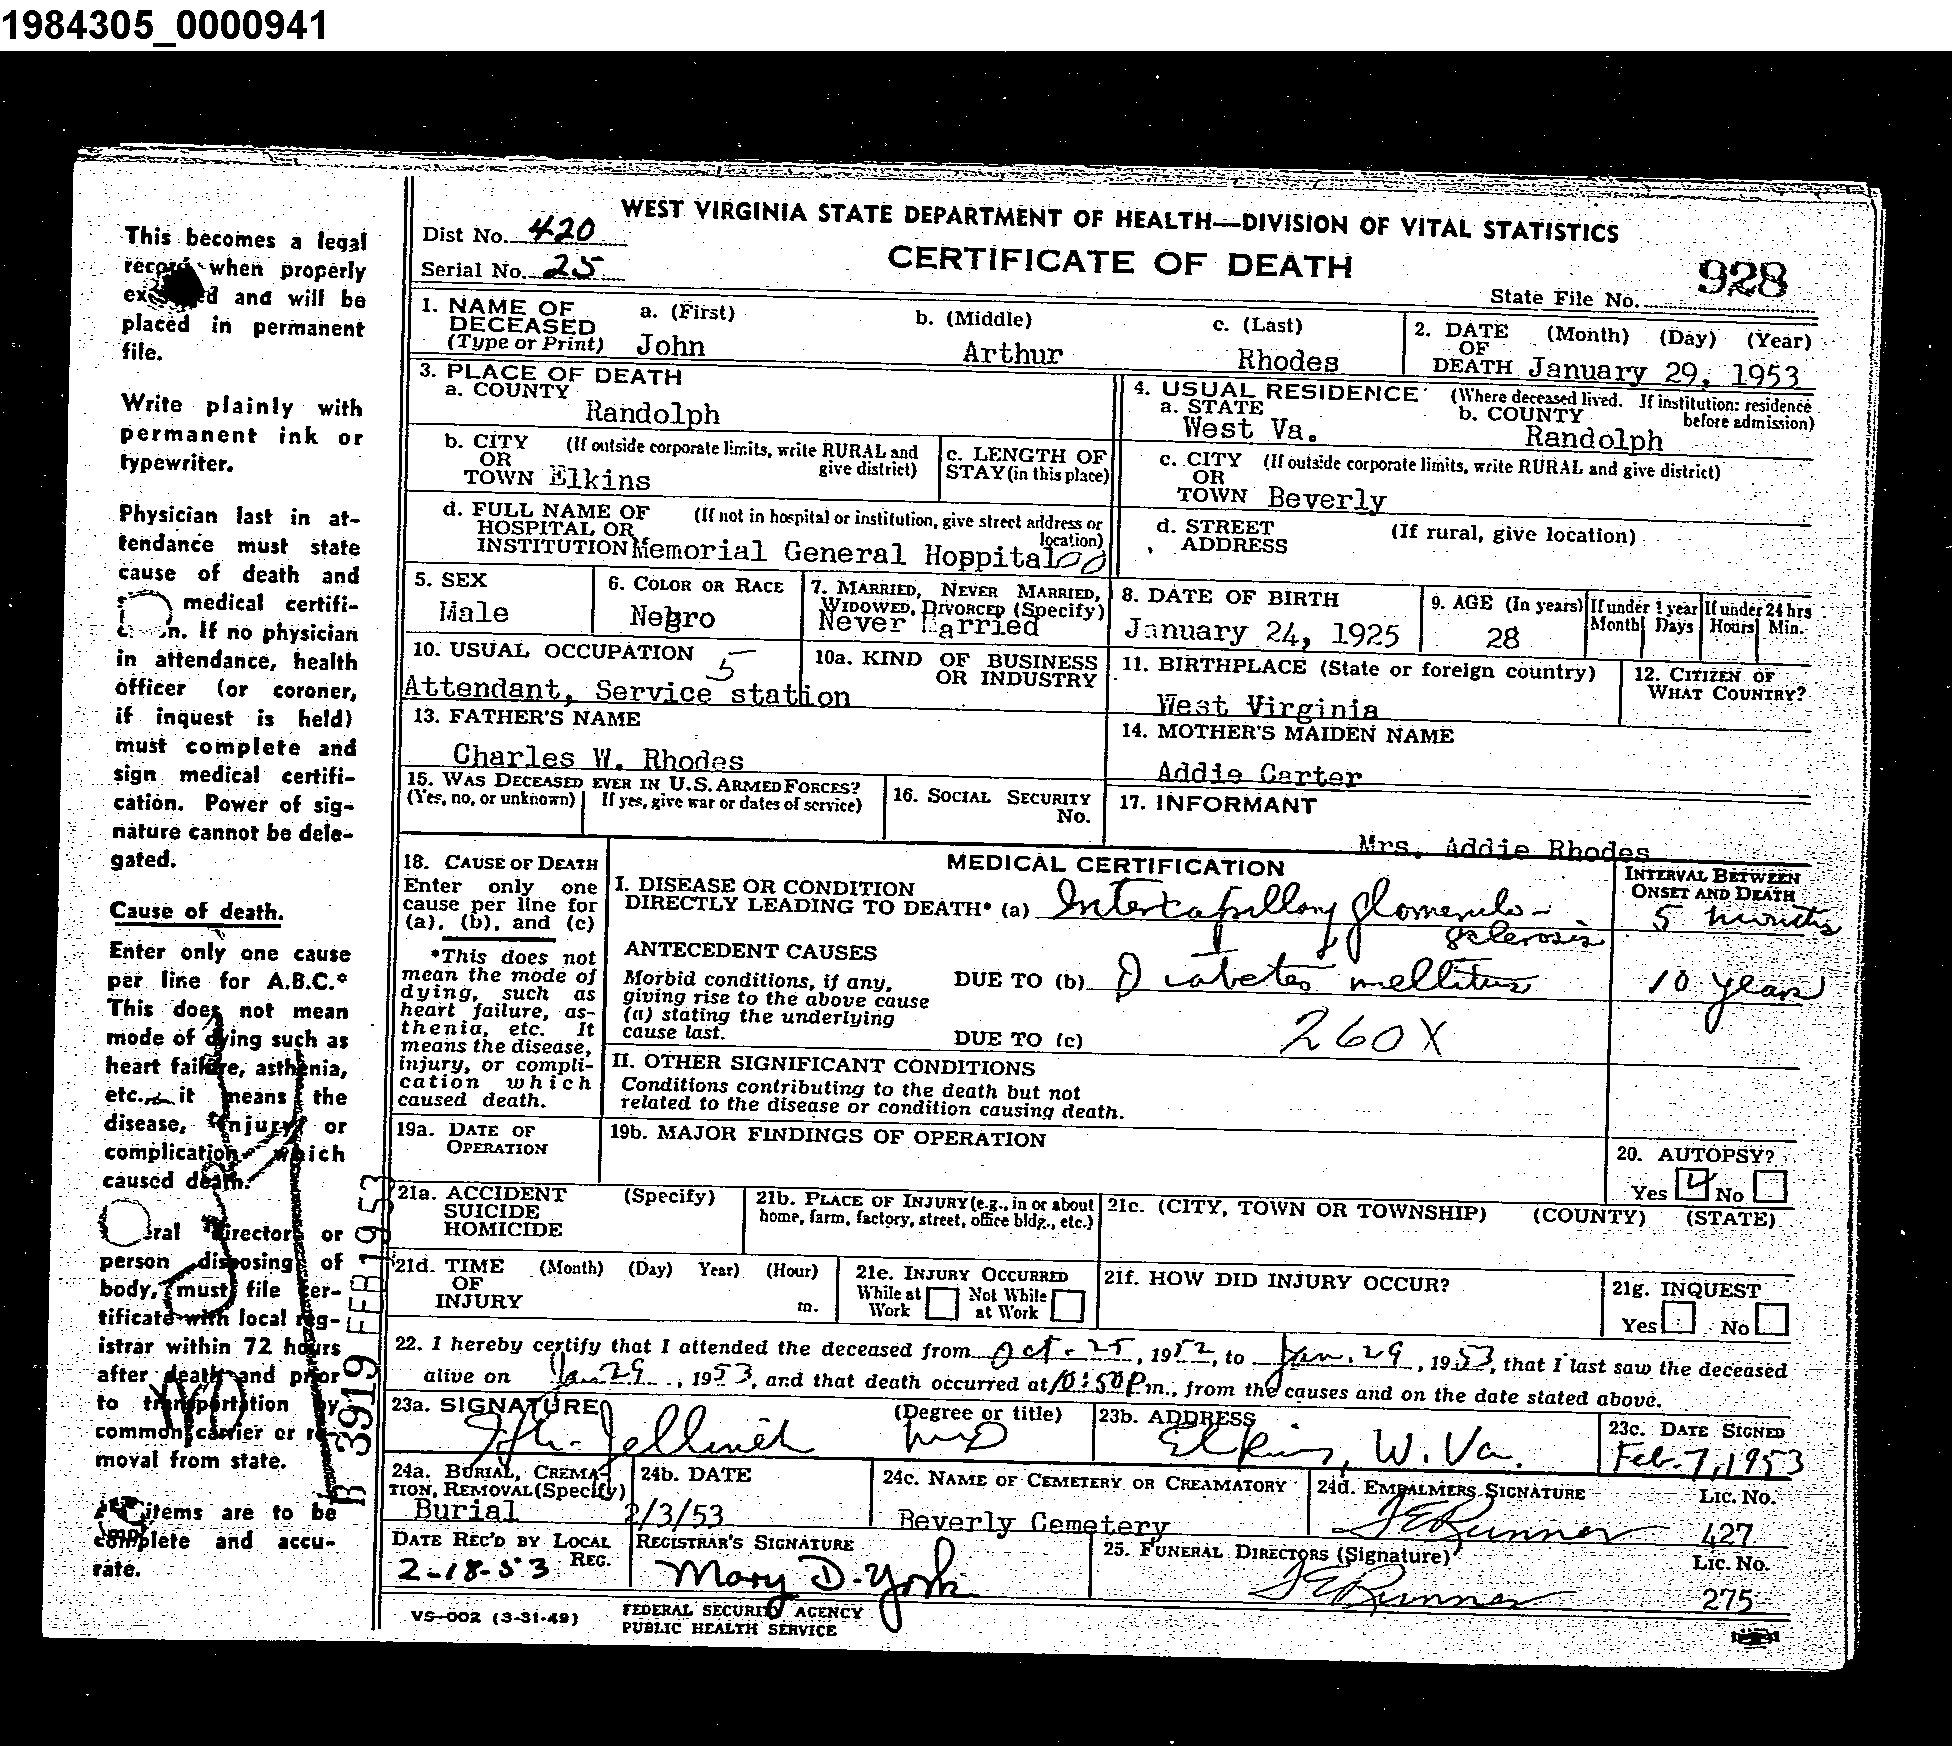 1984305_0000941
This becomes a legal
record when properly
and will be
placed in permanent
file.
Write plainly with
permanent ink or
typewriter.
Physician last in at-
tendance must state
cause of death and
medical certifi-
If no physician
in attendance, health
officer (or coroner,
if inquest is held)
must complete and
sign medical certifi-
cation. Power of sig-
nature cannot be dele-
gated.
Cause of death.
Enter only one cause
per line for A.B.C.*
This does not mean
mode of dying such as
heart failure, asthenia,
etc. it means the
disease, injury or
complication which
caused death.
director or
person disposing of
body, must file cer-
tificate with local reg-
istrar within 72 hours
after death and prior
to transportation by
common carrier or re-
moval from state.
items are to be
complete and accu-
rate.
R 3919 FEB 1953
WEST VIRGINIA STATE DEPARTMENT OF HEALTH—DIVISION OF VITAL STATISTICS
Dist No. 420
CERTIFICATE OF DEATH
Serial No. 25
State File No. 928
1. NAME OF DECEASED (Type or Print) a. (First) John b. (Middle) Arthur c. (Last) Rhodes
2. DATE OF DEATH (Month) (Day) (Year) January 29, 1953
3. PLACE OF DEATH
a. COUNTY Randolph
4. USUAL RESIDENCE (Where deceased lived. If institution: residence before admission)
a. STATE West Va. b. COUNTY Randolph
b. CITY OR TOWN (If outside corporate limits, write RURAL and give district) Elkins
c. LENGTH OF STAY (in this place)
c. CITY OR TOWN (If outside corporate limits, write RURAL and give district) Beverly
d. FULL NAME OF HOSPITAL OR INSTITUTION (If not in hospital or institution, give street address or location) Memorial General Hospital 00
d. STREET ADDRESS (If rural, give location)
5. SEX Male
6. COLOR OR RACE Negro
7. MARRIED, NEVER MARRIED, WIDOWED, DIVORCED (Specify) Never Married
8. DATE OF BIRTH January 24, 1925
9. AGE (In years) 28
If under 1 year Month Days
If under 24 hrs Hours Min.
10. USUAL OCCUPATION 5
Attendant, Service station
10a. KIND OF BUSINESS OR INDUSTRY
11. BIRTHPLACE (State or foreign country) West Virginia
12. CITIZEN OF WHAT COUNTRY?
13. FATHER'S NAME
Charles W. Rhodes
14. MOTHER'S MAIDEN NAME
Addie Carter
15. WAS DECEASED EVER IN U.S. ARMED FORCES?
(Yes, no, or unknown) If yes, give war or dates of service)
16. SOCIAL SECURITY No.
17. INFORMANT
Mrs. Addie Rhodes
18. CAUSE OF DEATH
Enter only one
cause per line for
(a), (b), and (c)
*This does not
mean the mode of
dying, such as
heart failure, as-
thenia, etc. It
means the disease,
injury, or compli-
cation which
caused death.
MEDICAL CERTIFICATION
INTERVAL BETWEEN ONSET AND DEATH
I. DISEASE OR CONDITION
DIRECTLY LEADING TO DEATH* (a) Intercapillary glomerulo- 5 months
sclerosis
ANTECEDENT CAUSES
Morbid conditions, if any,
giving rise to the above cause
(a) stating the underlying
cause last.
DUE TO (b) Diabetes mellitus 10 years
DUE TO (c) 260X
II. OTHER SIGNIFICANT CONDITIONS
Conditions contributing to the death but not
related to the disease or condition causing death.
19a. DATE OF OPERATION
19b. MAJOR FINDINGS OF OPERATION
20. AUTOPSY?
Yes No
21a. ACCIDENT SUICIDE HOMICIDE (Specify)
21b. PLACE OF INJURY (e.g., in or about home, farm, factory, street, office bldg., etc.)
21c. (CITY, TOWN OR TOWNSHIP) (COUNTY) (STATE)
21d. TIME OF INJURY (Month) (Day) Year) (Hour) m.
21e. INJURY OCCURRED While at Work Not While at Work
21f. HOW DID INJURY OCCUR?
21g. INQUEST Yes No
22. I hereby certify that I attended the deceased from Oct. 25, 1952, to Jan. 29, 1953, that I last saw the deceased
alive on Jan 29, 1953, and that death occurred at 10:50 Pm., from the causes and on the date stated above.
23a. SIGNATURE Jellinek (Degree or title) MD
23b. ADDRESS Elkins, W. Va.
23c. DATE SIGNED Feb. 7, 1953
24a. BURIAL, CREMATION, REMOVAL (Specify) Burial
24b. DATE 2/3/53
24c. NAME OF CEMETERY OR CREAMATORY Beverly Cemetery
24d. EMBALMERS SIGNATURE Runner LIC. NO. 427
DATE REC'D BY LOCAL REG. 2-18-53
REGISTRAR'S SIGNATURE Mary D. York
25. FUNERAL DIRECTORS (Signature) Runner LIC. NO. 275
VS-002 (3-31-49)
FEDERAL SECURITY AGENCY
PUBLIC HEALTH SERVICE